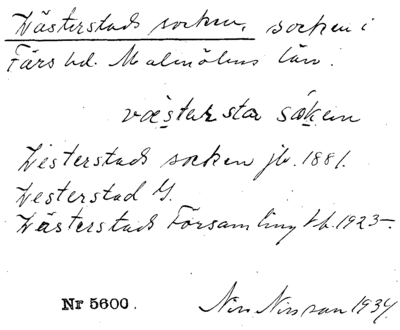 Västerstads socken, socken i
Färs hd. Malmöhus län.
västersta såken
Vesterstads socken jb. 1881.
Vesterstad G.
Västerstads Församling fb. 1925.
Nr 5600.
Nils Nilsson 1934.